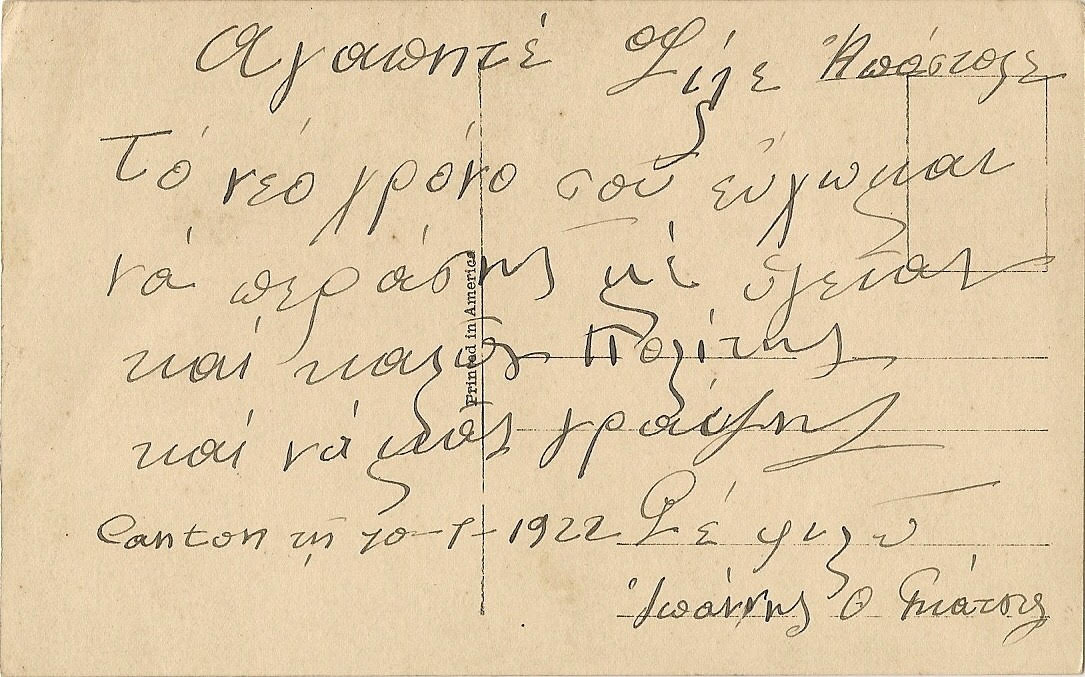 Αγαπητέ Φίλε Ἀπόστολε
Τό νέο χρόνο σου εύχωμαι
νά περάσης μέ ὑγείαν
καί καλός Πολίτης
καί νά μᾶς γράψης
Canton τῇ 10-1-1922 Σέ φιλῶ
Ἰωάννης Θ
Printed in America